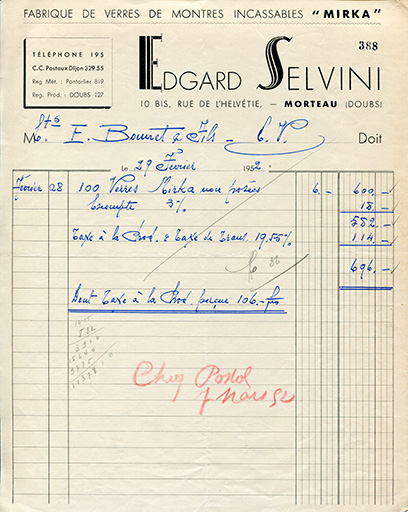 FABRIQUE DE VERRES DE MONTRES INCASSABLES "MIRKA"
TÉLÉPHONE 195
C.C. Postaux Dijon 329.55
Reg. Mét. : Pontarlier 819
Reg. Prod. : DOUBS 127
388
EDGARD SELVINI
10 BIS, RUE DE L'HELVÉTIE, — MORTEAU (DOUBS)
M Ets E. Bourret & Fils - C.V. Doit
le 29 Février 1952
Février 28 100 Verres Mirka non posées 6.- 600.-
Escompte 3% 18.-
582.-
Taxe à la Prod. & Taxe de Trans. 19.55% 114.-
696.-
Dont Taxe à la Prod. perçue 106.- frs
Cheq Postal
7 Mars 52